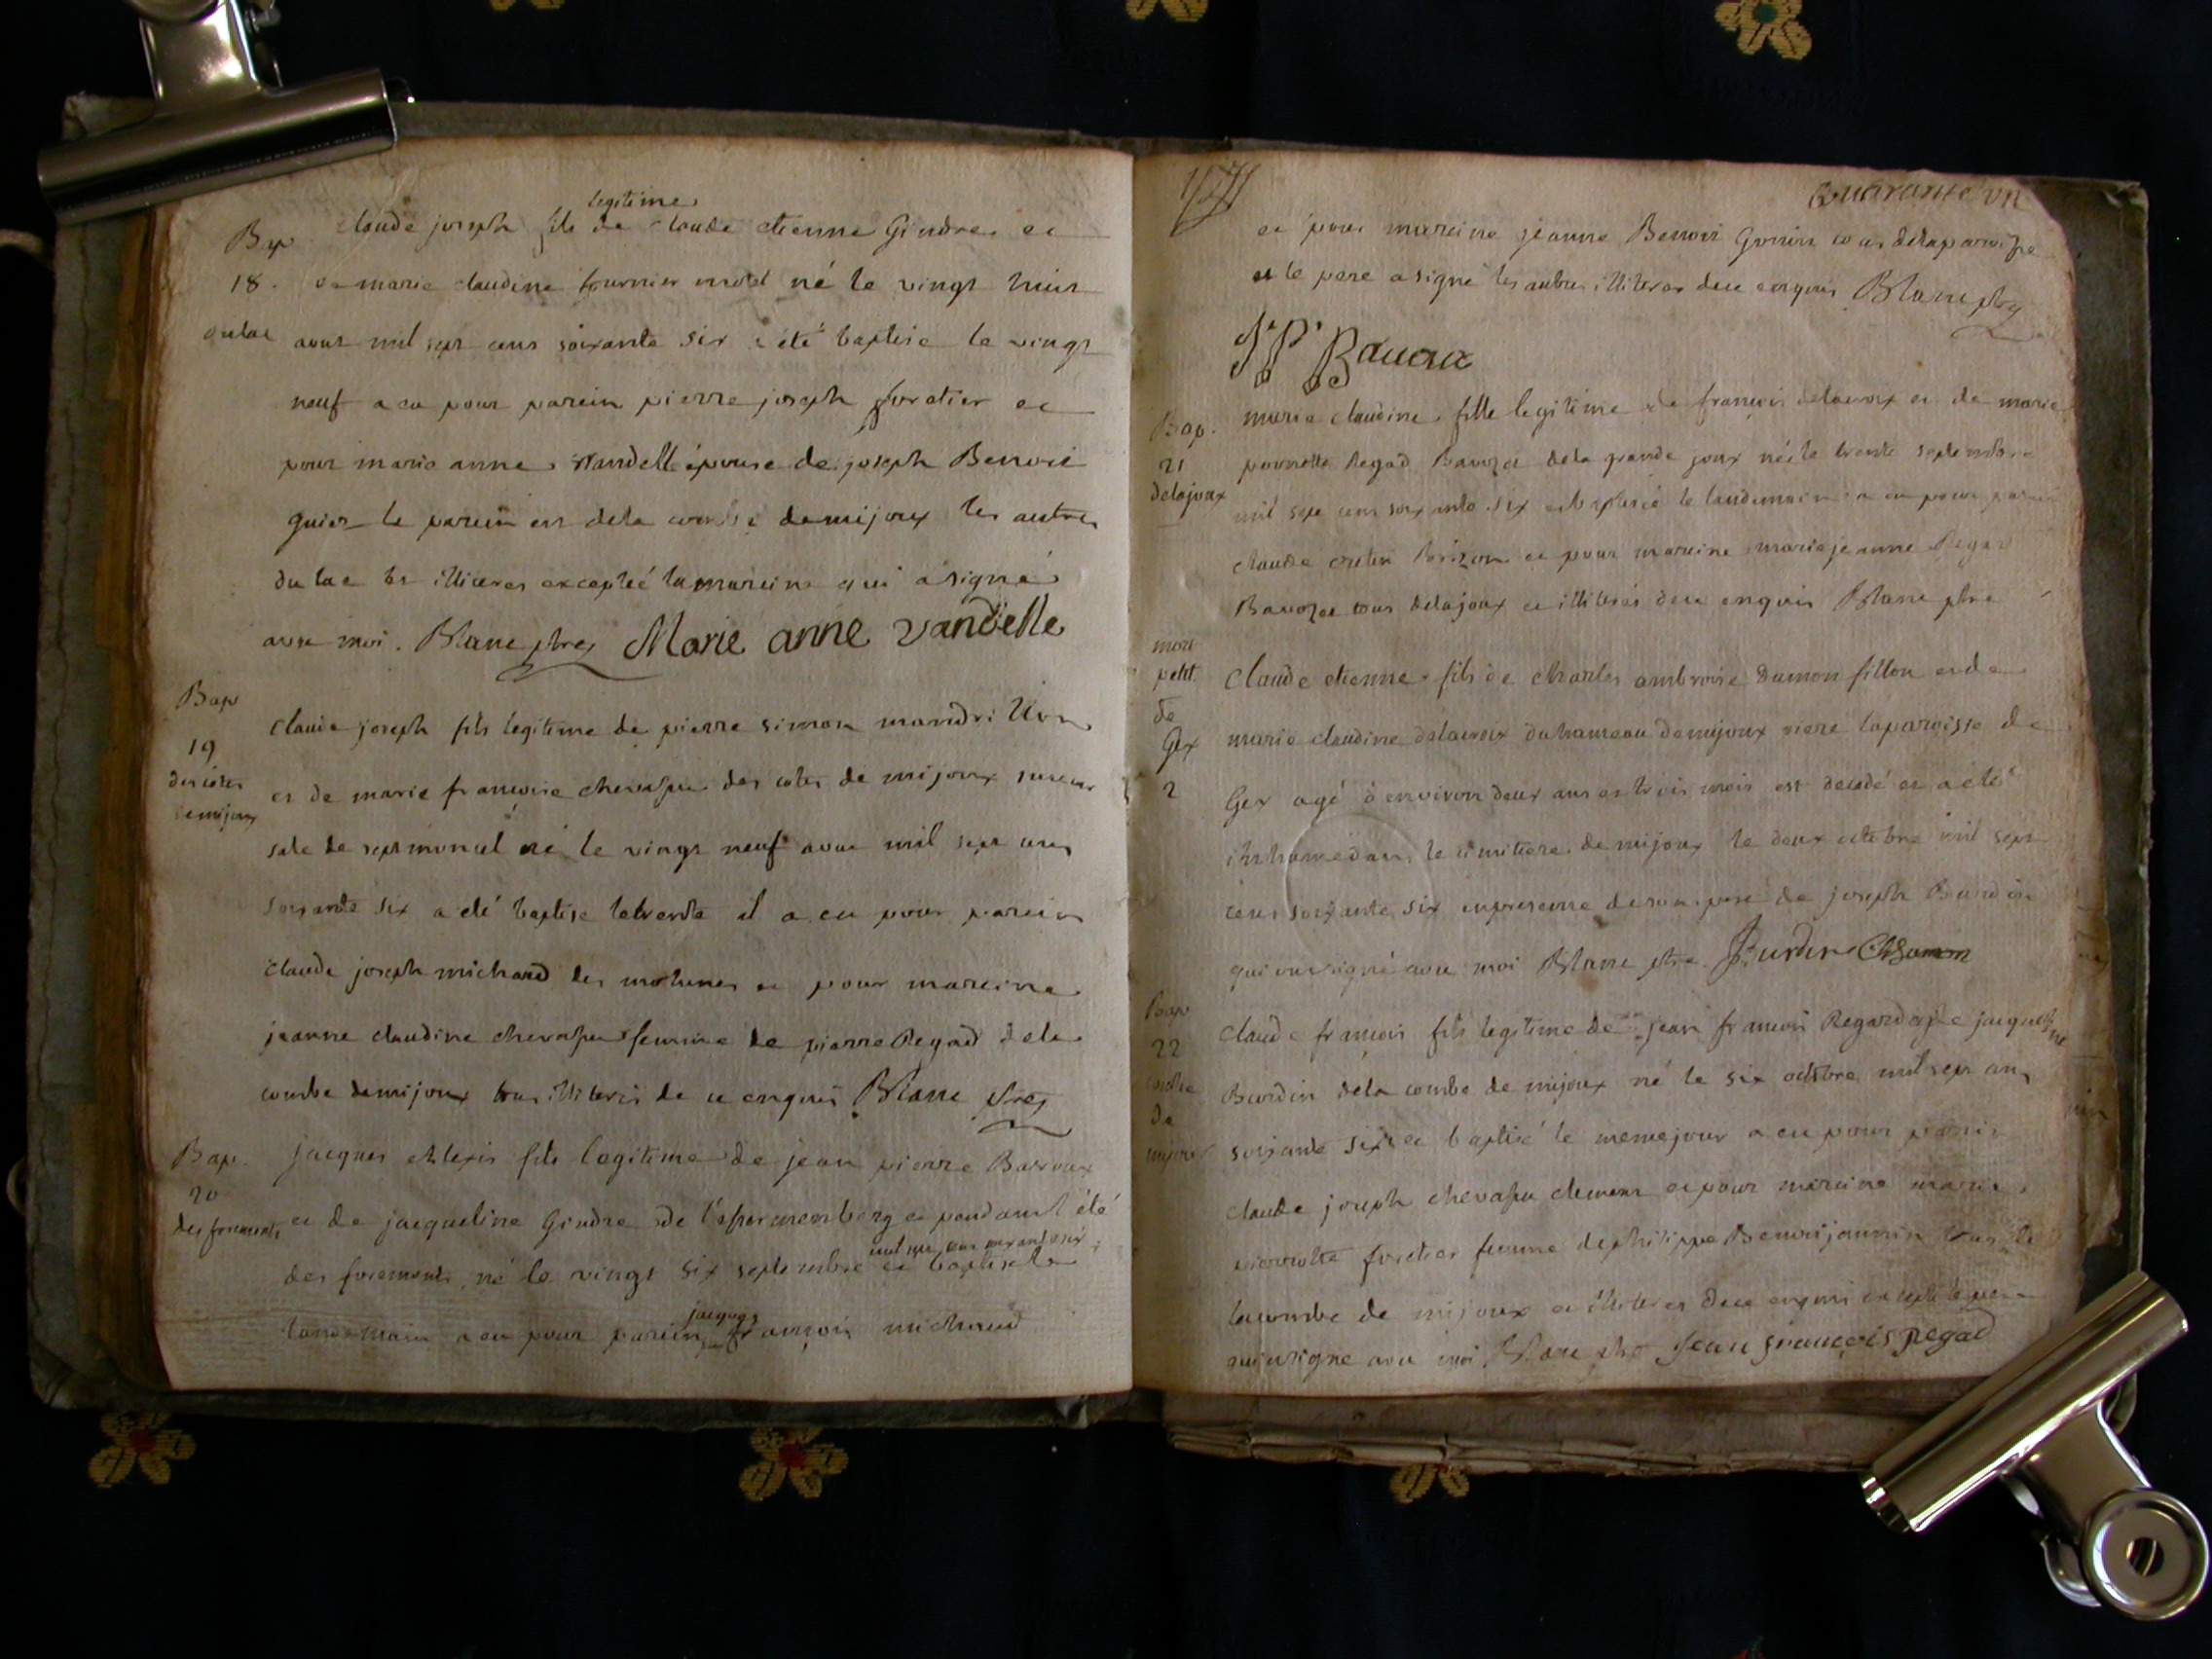 Bap
18.
dulac
legitime
claude joseph fils de claude etienne Gindre et
de marie claudine fournier né le vingt huit
aout mil sept cens soixante six a été baptisé le vingt
neuf a eu pour parein pierre joseph foretier et
pour marie anne Vandelle épouse de joseph Benoit
le parein est dela combe demijoux les autres
du lac et illiteres excepteé la mareine qui a signé
avec moi. Blanc ptre Marie anne vandelle
Bap
19
des cotes
demijoux
claude joseph fils legitime de pierre simon
et de marie francoise chevassu des cotes de mijoux
de septmoncel né le vingt neuf aout mil sept cens
soixante six a eté baptisé le trente il a eu pour parein
claude joseph michaud les molunes et pour mareine
jeanne claudine chevassu femme de pierre Regad dela
combe demijoux tous illiterés de ce enquis Blanc ptre
Bap.
20
des foremonts
jacques Alexis fils legitime de jean pierre
et de jacqueline Gindre de et pendant l'été
mil sept cens soixante six
des foremonts né le vingt six septembre et baptisé le
jacques
landemain a eu pour parein francois michaud
Quarante un
et pour mareine jeanne Benoit Gonin tous delaparoisse
et le pere a signé les autres illiteres dece enquis Blanc ptre
Bap.
21
delajoux
marie claudine fille legitime de francois delacroix et de marie
pernette Regad Bauozet dela grande joux née le trente septembre
mil sept cens soixante six et baptisée le landemain a eu pour parein
claude et pour mareine marie jeanne Regad
Bauozet tous delajoux et illiterés dece enquis Blanc ptre
mort
petit
de
Gex
2
claude etienne fils de charles ambroise Dumon fillon et de
marie claudine delacroix du hameau demijoux riere la paroisse de
Gex agé d environ deux ans et trois mois est decedé et a eté
inhumé dans le cimitiere demijoux le deux octobre mil sept
cens soixante six en presence de son pere de joseph Burdin
qui ont signé avec moi Blanc ptre J Burdin
Bap
22
combe
de
mijoux
claude francois fils legitime de jean francois Regad et de jacqueline
Burdin dela combe de mijoux né le six octobre mil sept cens
soixante six et baptisé le meme jour a eu pour parein
claude joseph chevassu clement et pour mareine marie
pierrotte foretier femme de philippe Benoit jannin tous de
lacombe de mijoux et illiteres dece enquis excepté le pere
qui a signé avec moi Blanc ptre Jean françois Regad